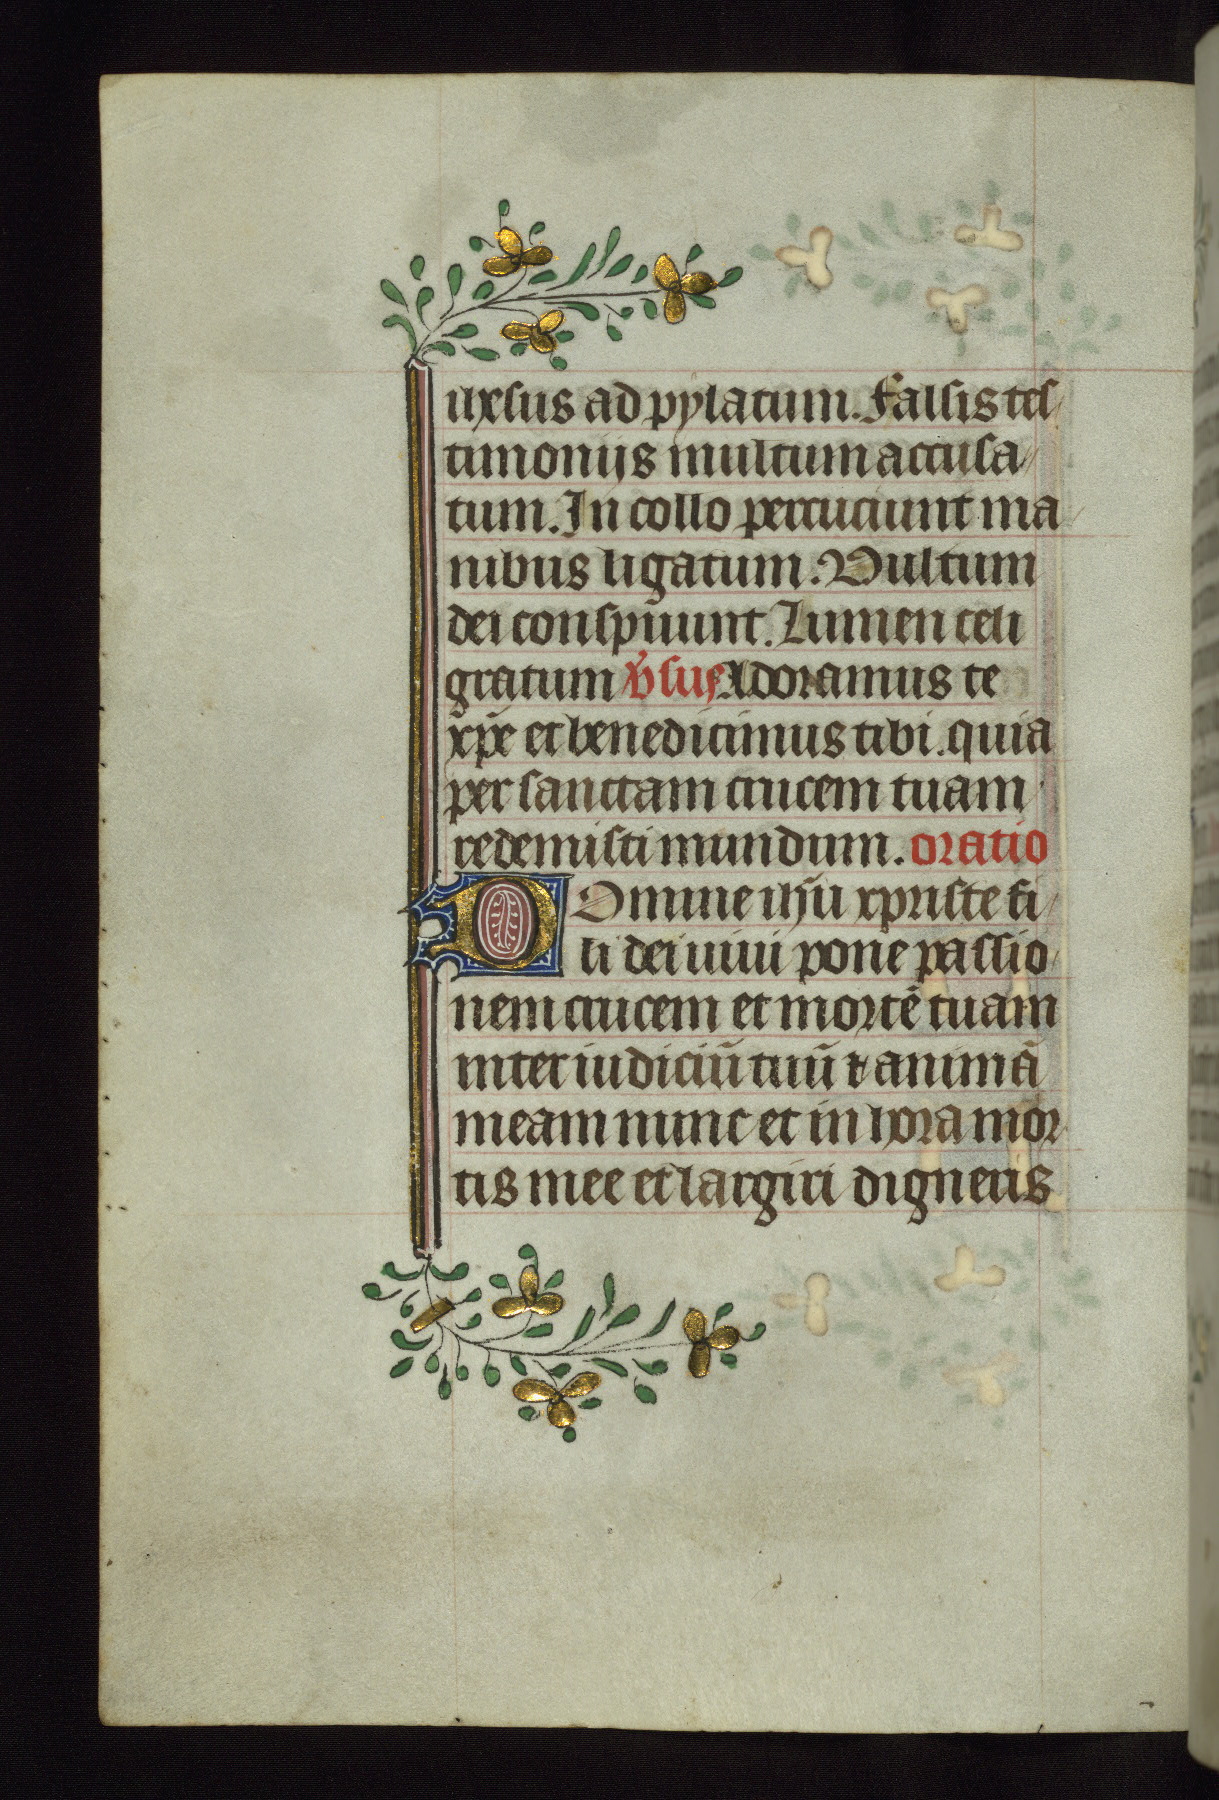 uxsus ad pylatum. Falsis tes
timoniis multum accusa
tum. In collo percuciunt ma
nibus ligatum. Vultum
dei conspuunt. Lumen celi
gratum v̾sus Adoramus te
xp̄e et benedicimus tibi. quia
per sanctam crucem tuam
redemisti mundum. oratio
Domine ihū xpriste fi
li dei uiui pone passio
nem crucem et mortē tuam
inter iudiciū tuū ⁊ animā
meam nunc et in hora mor
tis mee et largiri digneris